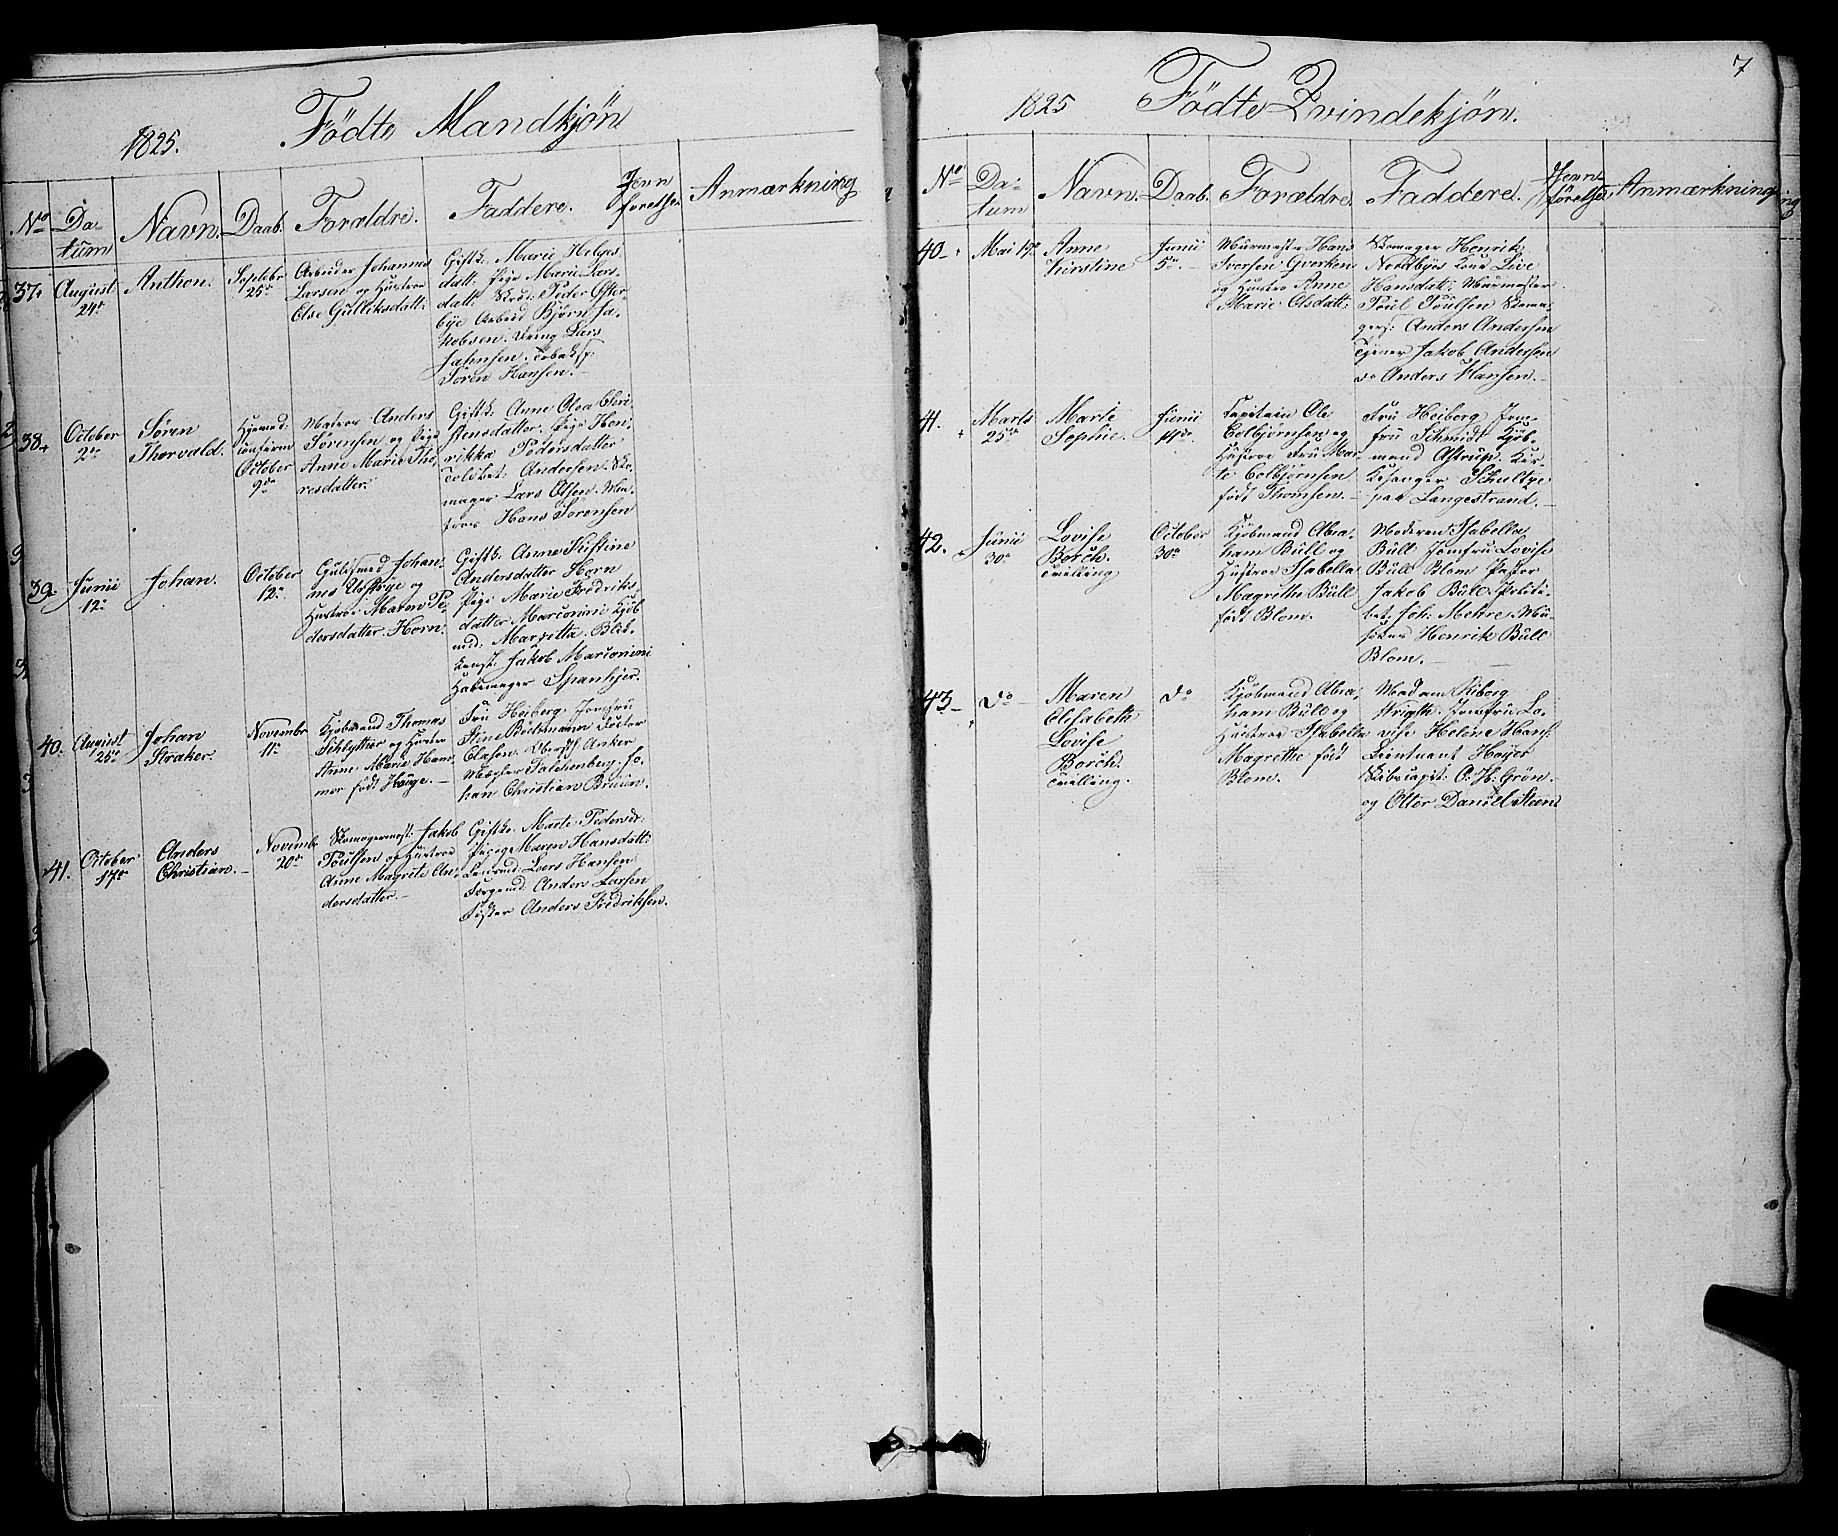 1825.
Födte Mandkjön
No
Da-
tum
Navn.
Daab.
Forældre.
Faddere.
Jevn
förelse.
Anmærkning
37.
August
24de
Anthon.
Septebr
25de
Arbeider Johannes
Larsen og Hustroe
Else Gulliksdatt:
Giftk. Marie Helges
datt: Pige Marie Lars-
datt: Peder Öster-
bye Arbeid Björn Ja-
kobsen. Dreng Lars
Jahnsen. Tobaksp:
Sören Hansen.
38.
October
2de
Sören
Thorvald.
Hjemmed:
October
9de
Matros Anders
Sörensen og Pige
Anne Marie Tho-
resdatter.
Giftk: Anne Olea Chri-
stensdatter. Pige Hen-
rikka Pedersdatter
Toldbet: Andersen. Sko-
mager Lars Olsen. Ma-
tros Hans Sörensen
39.
Junii
12te
Johan.
October
12te
Guldsmed Johan-
nes og
Hustroe Maren Pe-
dersdatter Horn.
Giftk: Anne Kistine
Andersdatter Horn
Pige Marie Fredriks
datter Marconini Kjöb
md: Marsetta. Blik-
Jakob Marconini
Spankjer.
40.
August
25de
Johan
Straker.
Novembr
11te
Kjöbmand Thomas
og Hustro
Anne Marie Ham-
mer föдt Hauge.
Fru Heiberg Jomfru
Stine Doctor
Clasen. Oberstl Anker
Mægler Falchenberg. Jo-
han Christian Bruun.
41.
October
17de
Anders
Christian.
Novembr
20de
Skomagermest: Jakob
Poulsen og Hustroe
Anne Magrete An-
dersdatter.
Giftke. Marte Pedersd:
Pige Maren Hansdatt:
Lars Hansen
Anders Larsen
Fisker Anders Fredriksen.
1825
Födte Qvindekjön.
7
No
Da-
tum
Navn.
Daab.
Forældre.
Faddere.
Jevn-
förelse.
Anmærkning
40.
Mai 17de
Anne
Kirstine
Junii
5te
Murmester Hans
Iversen Gverken
og Hustroe Anne
Marie Olsdatt:
Skomager Henrik
Nordbyes Kone Live
Hansdatt: Murmester
Poul Poulsen Skoma-
gers: Anders Andersen
Tjener Jakob Andersen
do Anders Hansen.
41.
Marts
25de
Marte
Sophie.
Junii
14de
Capitain Ole
Colbjörnsen og
Hustroe Fru Mar-
te Colbjörnsen
födt Thomsen.
Fru Heiberg Jom-
fru Schmidt Kjöb-
mand Astrup. Kir-
kesanger Schultze
paa Langestrand.
42.
Junii
30te
Lovise
Borch.
tvilling
October
30te
Kjöbmand Abra-
ham Bull og
Hustroe Isabella
Magrethe Bull
födt Blom.
Moderen Isabella
Bull Jomfru Lovise
Bull Blom Pastor
Jakob Bull.
Joh: Mehre.
Henrik Bull
Blom.
43
do
Maren
Elisabeth
Lovise
Borch.
tvilling.
do
Kjöbmand Abra-
ham Bull og
Hustroe Isabella
Magrethe född
Blom.
Madam Kiberg
Wrigth. Jomfru Lo-
vise Helene Hans
Lieutnant Höyer
Skibscapit: O. H. Grön.
og Otter Daniel Steen